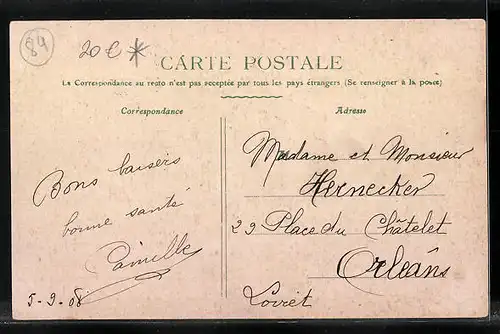 84
20€ *
CARTE POSTALE
La Correspondance au recto n'est pas acceptée par tous les pays étrangers (Se renseigner à la poste)
Correspondance
Adresse
Bons baisers
bonne santé
Camille
5-9-08
Madame et Monsieur
Hernecker
29 Place du Châtelet
Orléans
Loiret